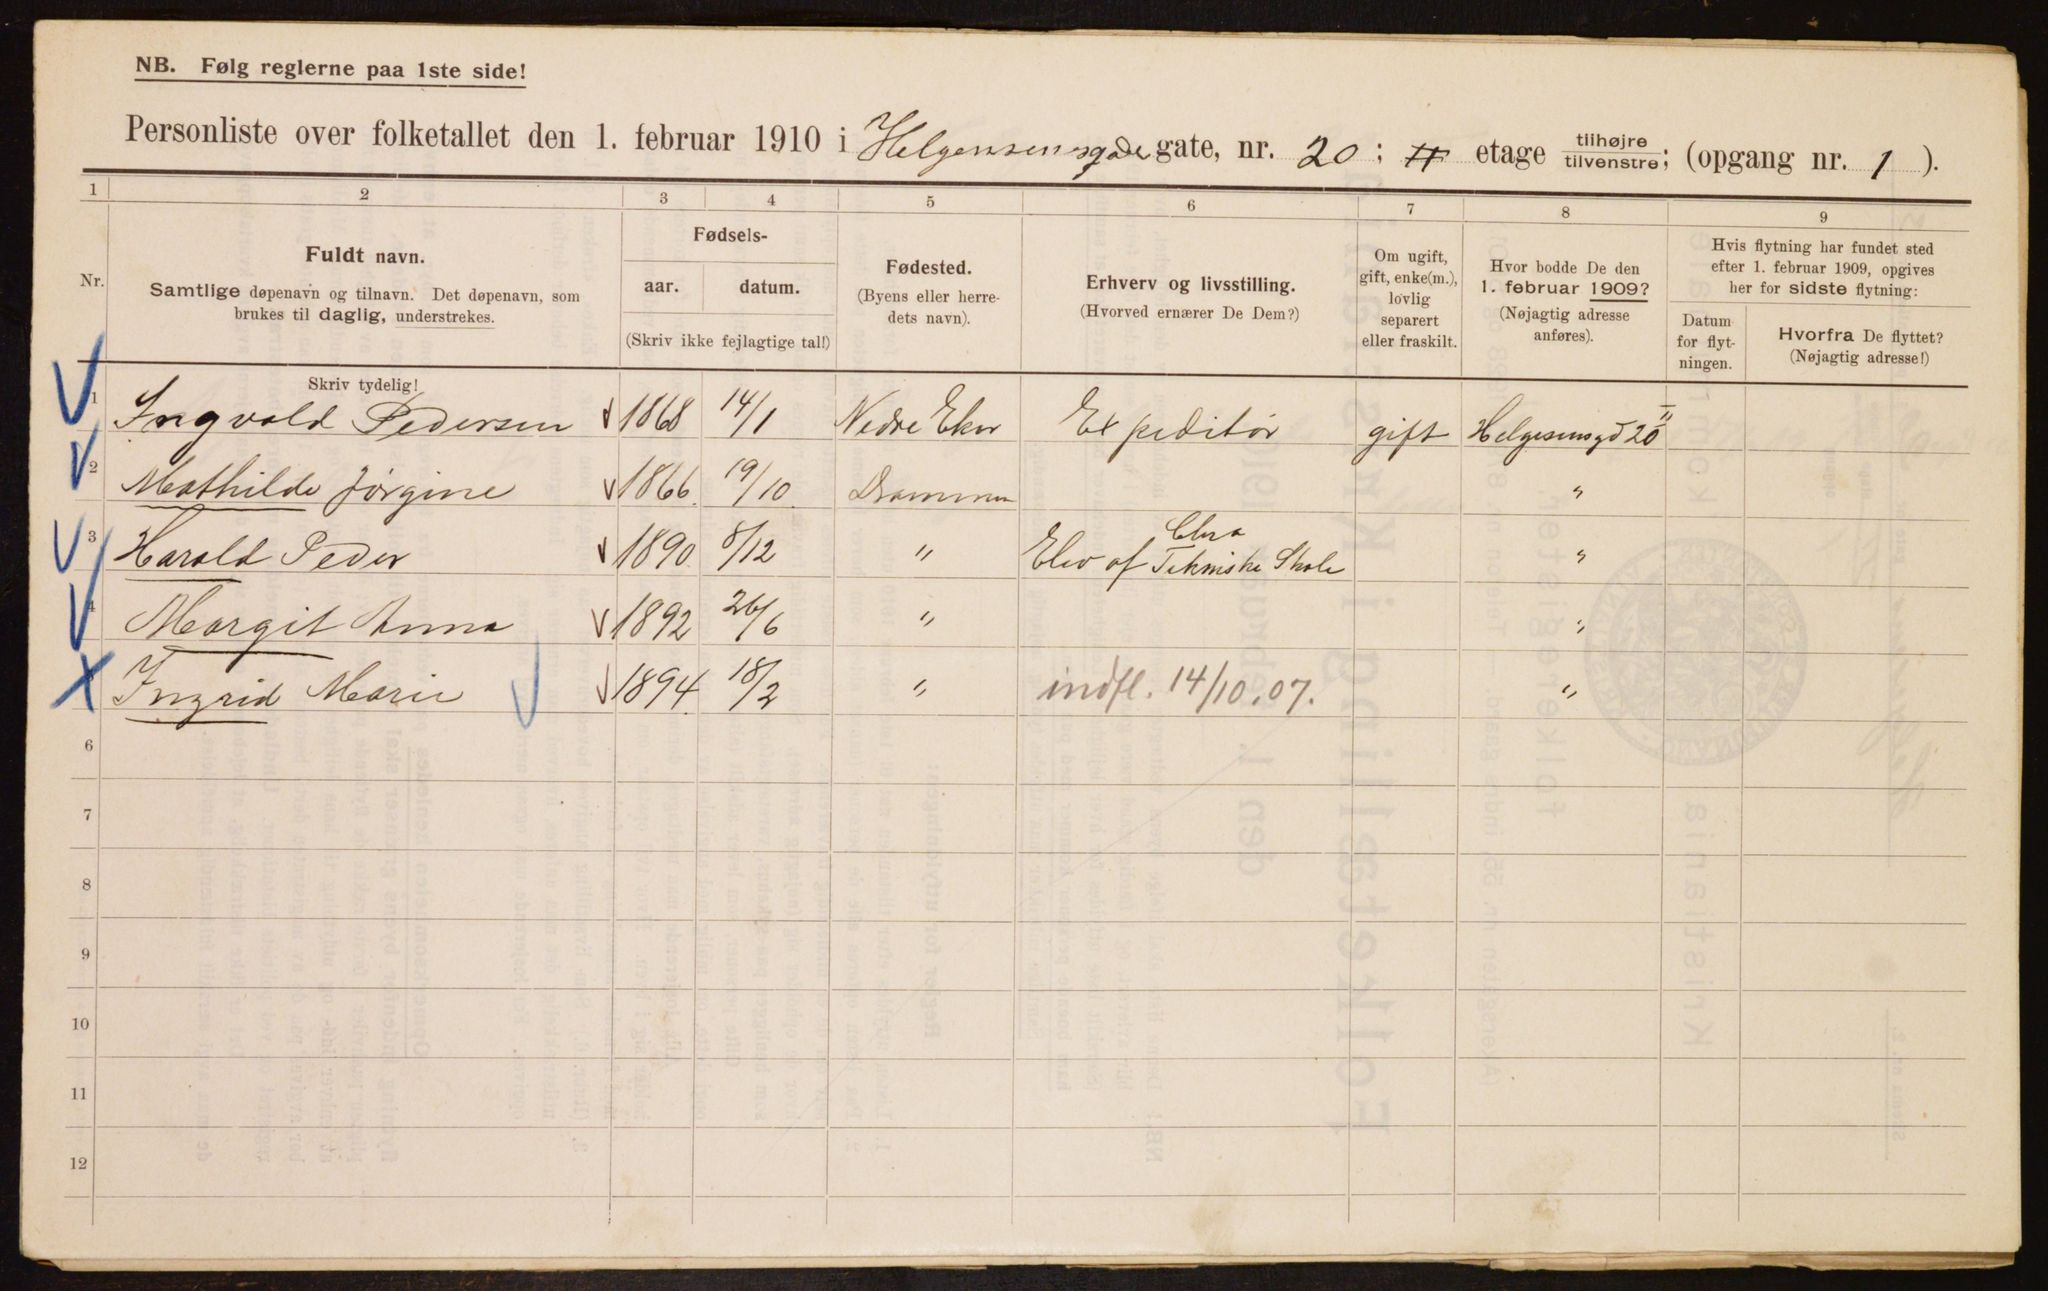 NB. Følg reglerne paa 1ste side!
Personliste over folketallet den 1. februar 1910 i Helgensensgade gate, nr. 20 ; II etage tilhøjre tilvenstre; (opgang nr. 1 ).
1 2 3 4 5 6 7 8 9
Nr.
Fuldt navn.
Samtlige døpenavn og tilnavn. Det døpenavn, som
brukes til daglig, understrekes.
Fødsels-
aar. datum.
(Skriv ikke fejlagtige tal!)
Fødested.
(Byens eller herre-
dets navn).
Erhverv og livsstilling.
(Hvorved ernærer De Dem?)
Om ugift,
gift, enke(m.),
lovlig
separert
eller fraskilt.
Hvor bodde De den
1. februar 1909?
(Nøjagtig adresse
anføres).
Hvis flytning har fundet sted
efter 1. februar 1909, opgives
her for sidste flytning:
Datum
for flyt-
ningen.
Hvorfra De flyttet?
(Nøjagtig adresse!)
Skriv tydelig!
1 Ingvald Pedersen 1868 14/1 Nedre Eker Expeditør gift Helgesensgd 20 II
2 Mathilde Jørgine 1866 19/10 Drammen "
3 Harald Peder 1890 8/12 " Elev af Chra Tekniske Skole "
4 Margit Anna 1892 26/6 " "
Ingrid Marie 1894 18/2 " indfl. 14/10.07. "
6
7
8
9
10
11
12